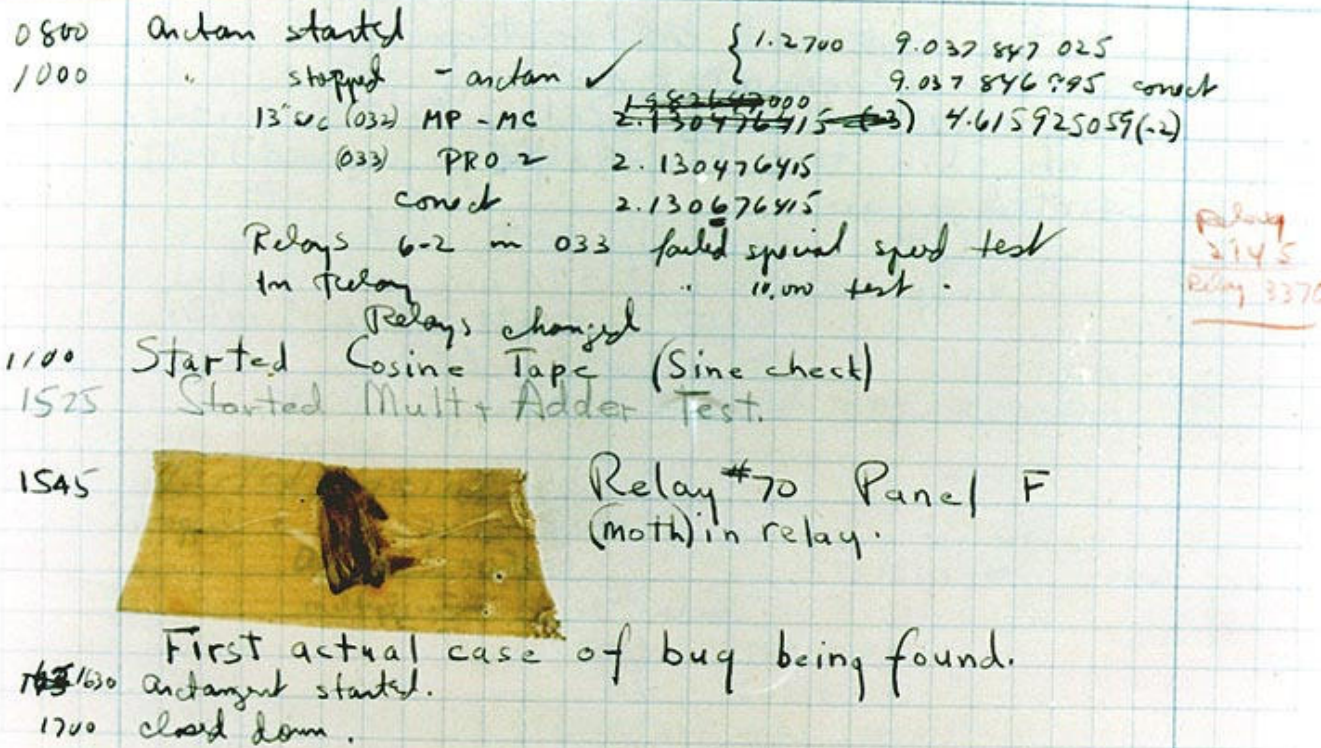 0800 antan started { 1.2700 9.037 847 025
1000 " stopped - antan ✓ 9.037 846 795 conect
13"uc (032) MP - MC 2.130476415 (-3) 4.615925059(-2)
(033) PRO 2 2.130476415
conect 2.130676415
Relays 6-2 in 033 failed special speed test
In Relay " 10,000 test .
Relays changed
Relay
2145
Relay 3370
1100 Started Cosine Tape (Sine check)
1525 Started Mult + Adder Test.
1545 Relay #70 Panel F
(moth) in relay.
First actual case of bug being found.
1630 antangent started.
1700 closed down.